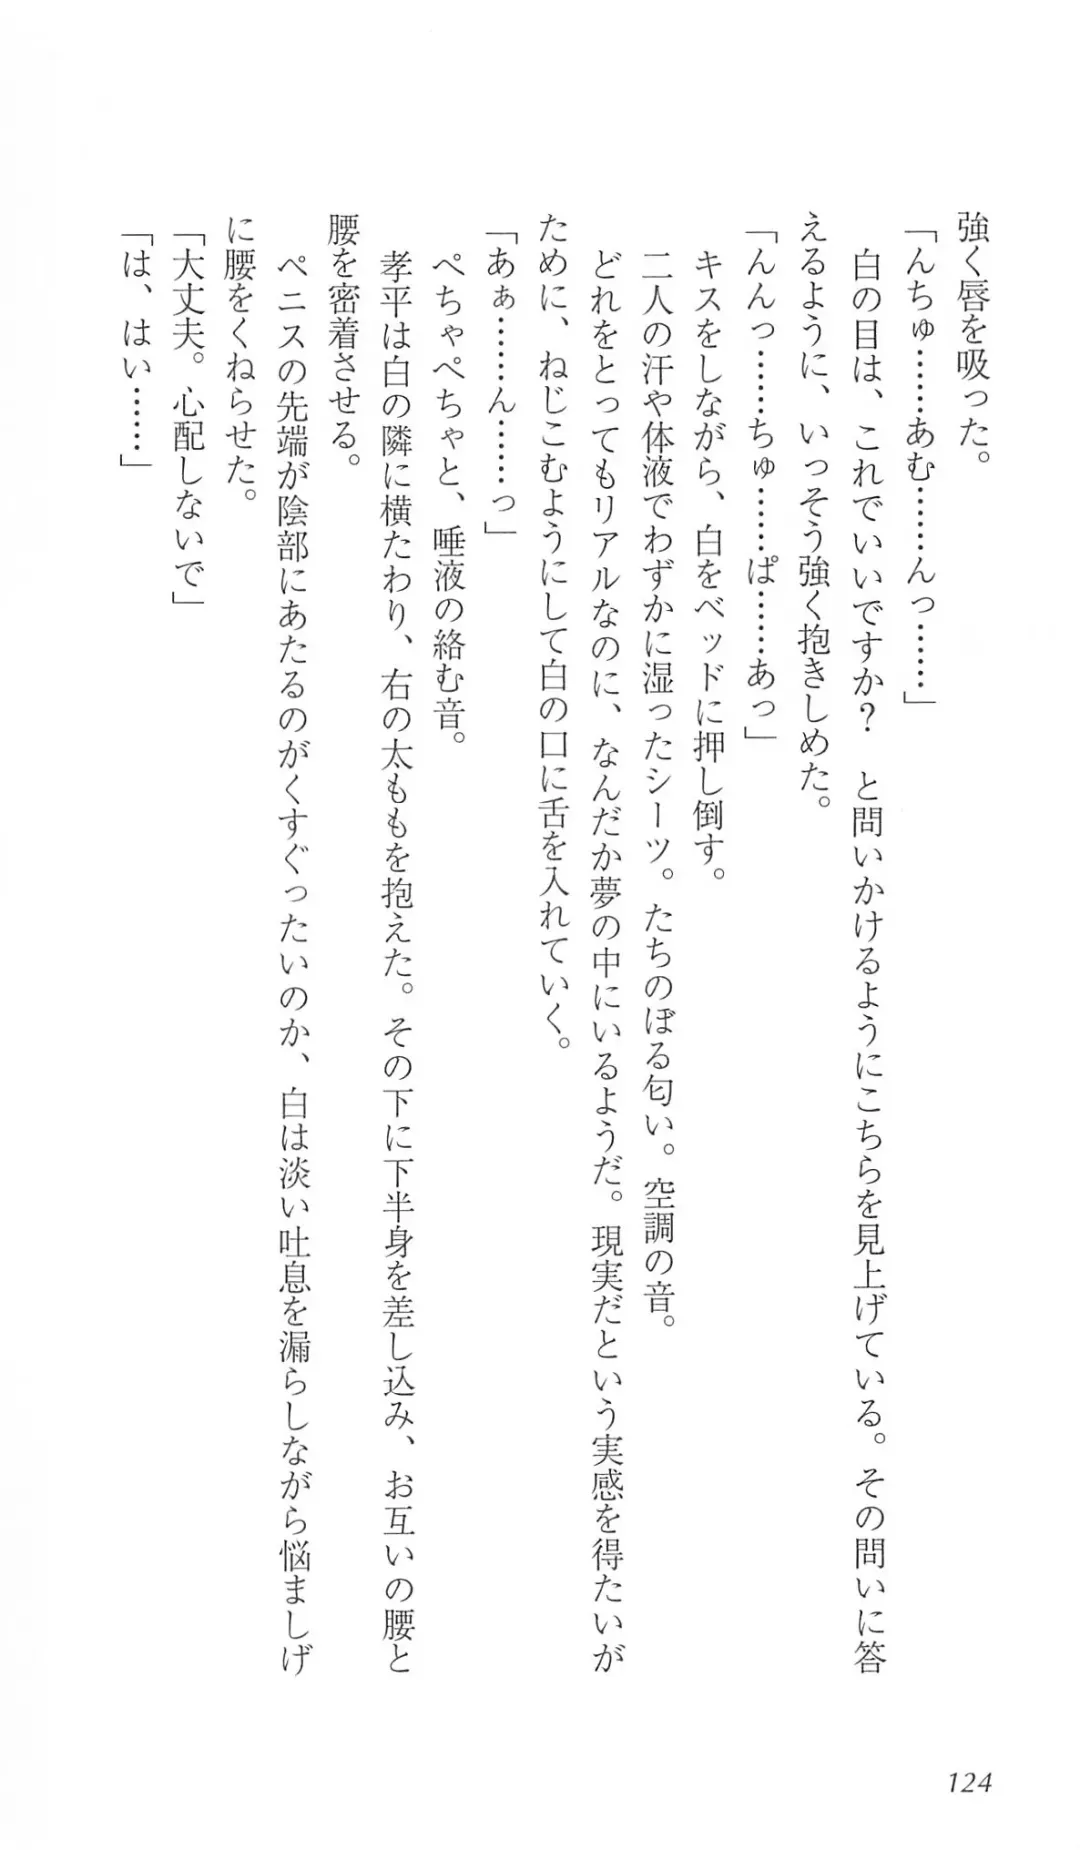 強く唇を吸った。
「んちゅ……あむ……んっ……」
白の目は、これでいいですか？　と問いかけるようにこちらを見上げている。その問いに答
えるように、いっそう強く抱きしめた。
「んんっ……ちゅ……ぱ……あっ」
キスをしながら、白をベッドに押し倒す。
二人の汗や体液でわずかに湿ったシーツ。たちのぼる匂い。空調の音。
どれをとってもリアルなのに、なんだか夢の中にいるようだ。現実だという実感を得たいが
ために、ねじこむようにして白の口に舌を入れていく。
「あぁ……ん……っ」
ぺちゃぺちゃと、唾液の絡む音。
孝平は白の隣に横たわり、右の太ももを抱えた。その下に下半身を差し込み、お互いの腰と
腰を密着させる。
ペニスの先端が陰部にあたるのがくすぐったいのか、白は淡い吐息を漏らしながら悩ましげ
に腰をくねらせた。
「大丈夫。心配しないで」
「は、はい……」
124